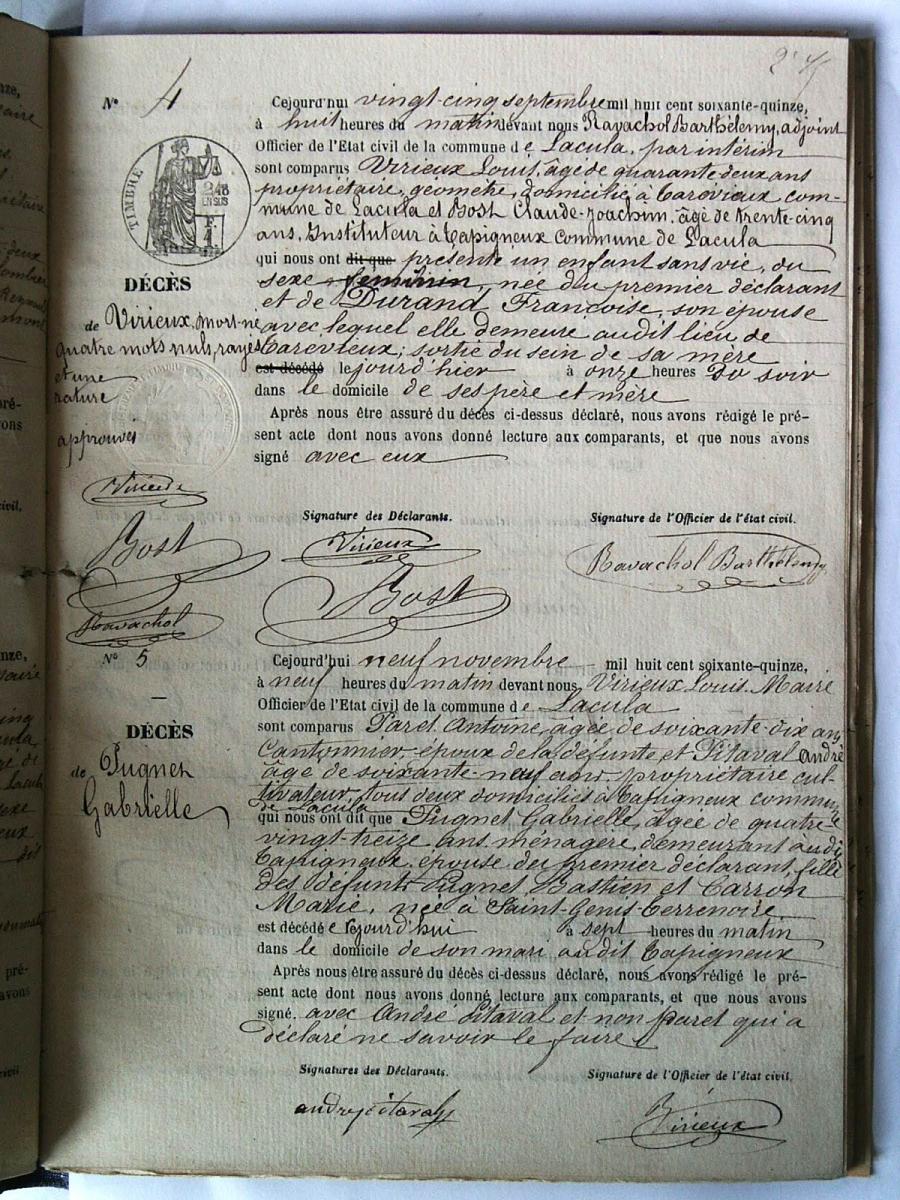 2
N° 4
Cejourd'hui vingt-cinq septembre mil huit cent soixante-quinze,
à huit heures du matin devant nous Ravachol Barthélemy, adjoint
Officier de l'Etat civil de la commune de Lacula, par intérim
sont comparus Virieux Louis, âgé de quarante deux ans
propriétaire, géomètre, domicilié à Carévieux com-
mune de Lacula et Bost Claude-Joachim, âgé de trente-cinq
ans, Instituteur à Capigneux Commune de Lacula
qui nous ont dit que présenté un enfant sans vie, du
sexe féminin, née du premier déclarant
et de Durand Françoise, son épouse
avec lequel elle demeure audit lieu de
Carévieux; sortie du sein de sa mère
est décédé le jourd'hier à onze heures Du soir
dans le domicile de ses père et mère
Après nous être assuré du décès ci-dessus déclaré, nous avons rédigé le pré-
sent acte dont nous avons donné lecture aux comparants, et que nous avons
signé avec eux
TIMBRE
2/10 EN SUS
DÉCÈS
de Virieux, mort-né
quatre mots nuls, rayés
et une
rature
approuvés
Virieux
Bost
Ravachol
Signature des Déclarants.
Signature de l'Officier de l'état civil.
Virieux
Bost
Ravachol Barthélemy
N° 5
DÉCÈS
de Pugnet
Gabrielle
Cejourd'hui neuf novembre mil huit cent soixante-quinze,
à neuf heures du matin devant nous Virieux Louis Maire
Officier de l'Etat civil de la commune de Lacula
sont comparus Paret Antoine, âgée de soixante-dix ans
Cantonnier, époux de la défunte et Pitaval André
âgé de soixante-neuf ans, propriétaire cul-
tivateur, tous deux domiciliés à Capigneux commune
de Lacula
qui nous ont dit que Pugnet Gabrielle, âgée de quatre-
vingt-treize ans, ménagère, demeurant audit
Capigneux, épouse du premier déclarant, fille
des défunts Pugnet Bastien et Carron
Marie, née à Saint-Genis-Terrenoire,
est décédée cejourd'hui à sept heures du matin
dans le domicile de son mari audit Capigneux
Après nous être assuré du décès ci-dessus déclaré, nous avons rédigé le pré-
sent acte dont nous avons donné lecture aux comparants, et que nous avons
signé, avec André Pitaval et non Paret qui a
déclaré ne savoir le faire
Signatures des Déclarants.
Signature de l'Officier de l'état civil.
andré pitaval
Virieux